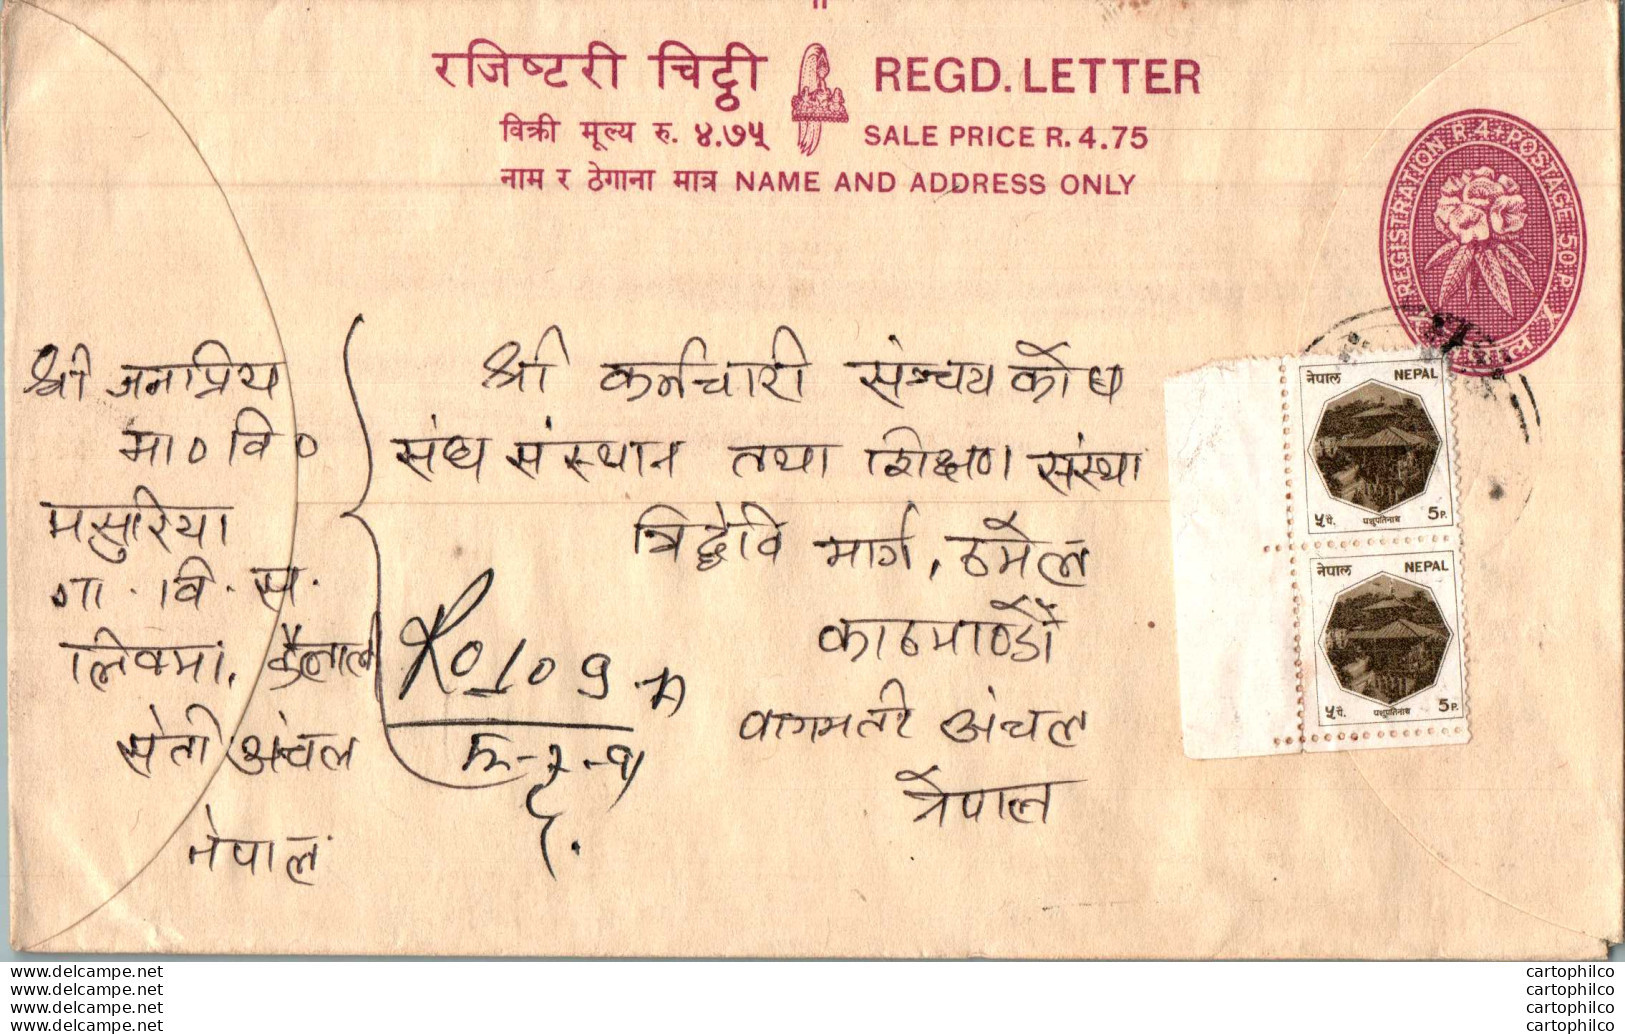 रजिष्टरी चिट्ठी REGD. LETTER
विक्री मूल्य रु. ४.७५ SALE PRICE R. 4.75
नाम र ठेगाना मात्र NAME AND ADDRESS ONLY
REGISTRATION R 4 POSTAGE 50 P.
नेपाल NEPAL
५ पै. पशुपतिनाथ 5P.
नेपाल NEPAL
५ पै. पशुपतिनाथ 5P.
श्री जनाप्रिय
मा० वि०
मसुरिया
गा. वि. स.
कैलाली
सेती अंचल
नेपाल
श्री कर्मचारी सञ्चय कोष
संघ संस्थान तथा शिक्षण संस्था
त्रिद्देवि मार्ग, ठमेल
काठमाण्डौ
वागमती अंचल
नेपाल
www.delcampe.net
www.delcampe.net
www.delcampe.net
www.delcampe.net
cartophilco
cartophilco
cartophilco
cartophilco